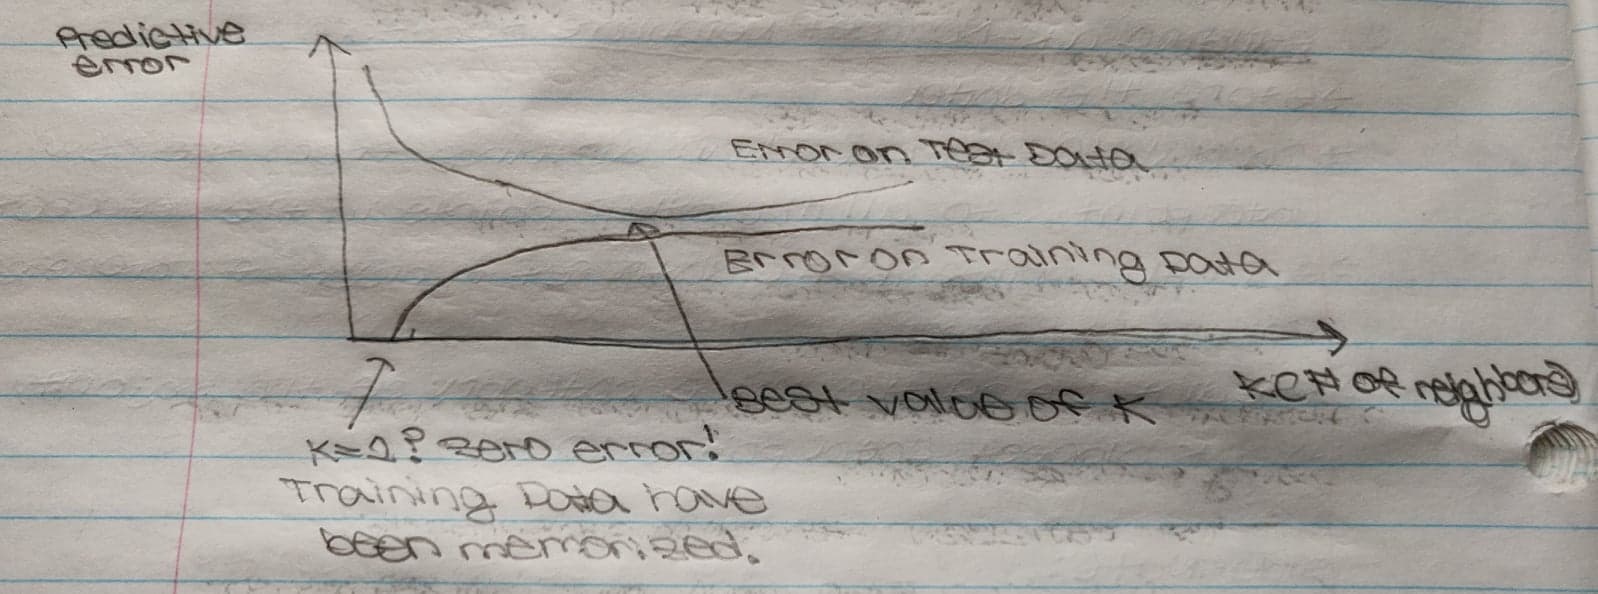 Predictive
error
Error on Test Data
Error on Training Data
Best value of K
K(# of neighbors)
K=1? zero error!
Training Data have
been memorized.